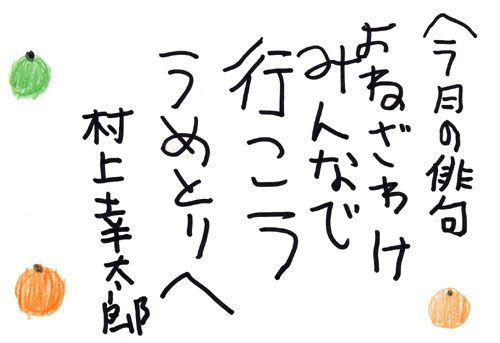 今月の俳句
よねざわけ
みんなで
行こう
うめとりへ
村上幸太郎